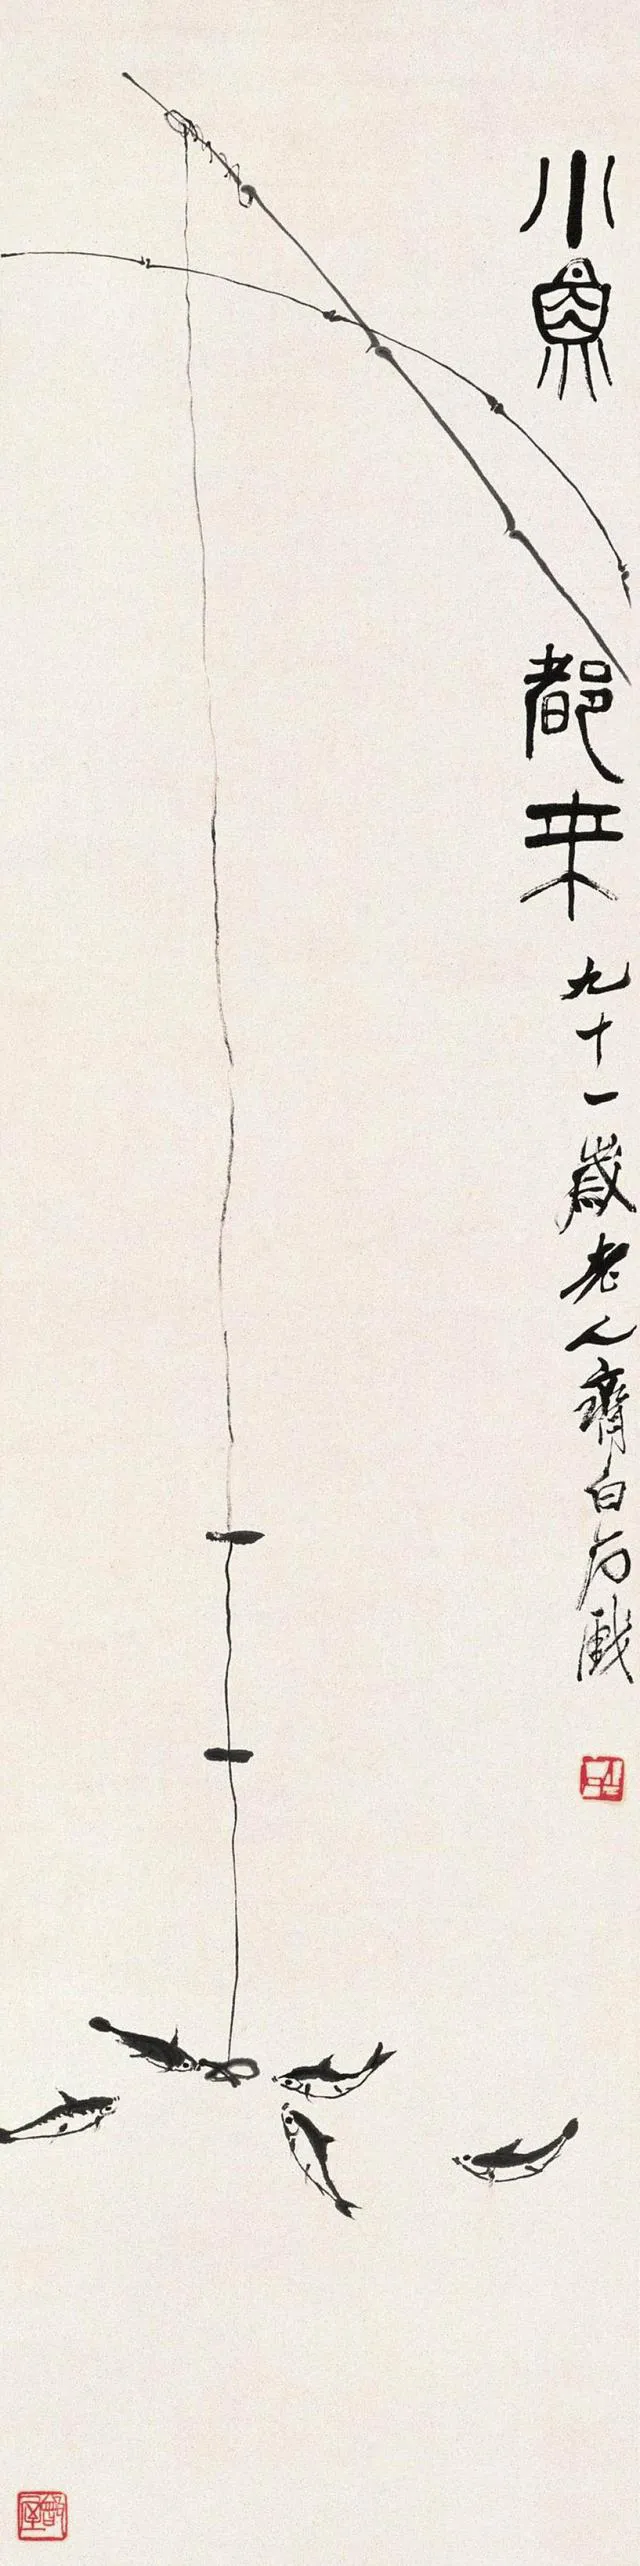 小魚都來九十一歲老人齊白石戲